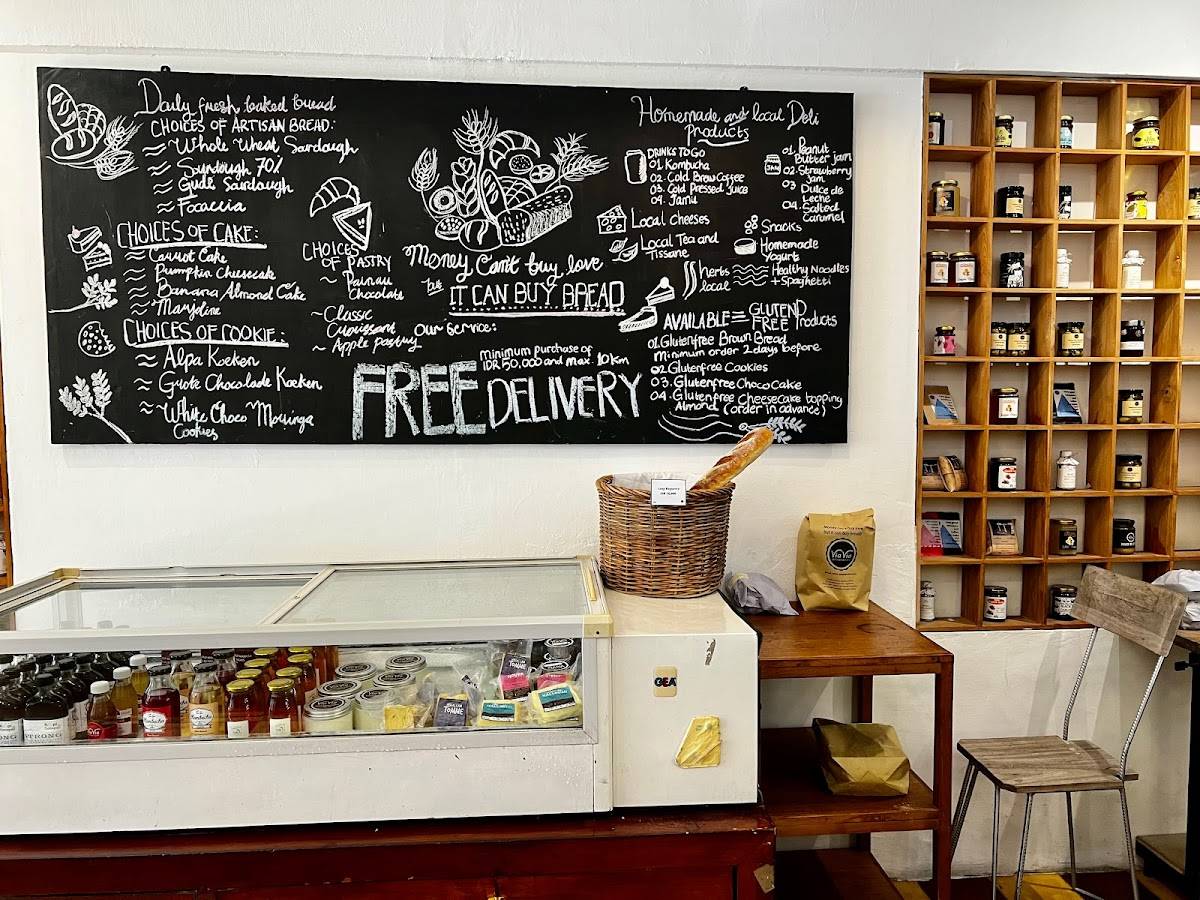 Daily fresh baked bread
CHOICES OF ARTISAN BREAD:
Whole Wheat Sourdough
Surdough 70%
Gude Sourdough
Focaccia
CHOICES OF CAKE:
Carrot Cake
Pumpkin Cheesecake
Banana Almond Cake
Marjoline
CHOICES OF COOKIE:
Alpa Koeken
Grote Chocolade Koeken
White Choco Moringa
Cookies
CHOICES
OF PASTRY
Painau
Chocolate
~Classic
Crossaint
~ Apple pastry
Money Can't buy love
but
IT CAN BUY BREAD
Our Service:
Minimum purchase of
IDR 50.000 and max 10km
FREE DELIVERY
Homemade and local Deli
products
DRINKS TO GO
01. Kombucha
02. Cold Brew Coffee
03. Cold Pressed Juice
04. Jamu
JAM
01. Peanut
Butter jam
02. Strawberry
jam
03 Dulce de
Leche
04. Salted
Caramel
Local cheeses
Local Tea and
Tissane
herbs
local
Snacks
Homemade
Yogurt
Healthy Noodles
+ Spaghetti
AVAILABLE = GLUTEND
FREE Products
01. Glutenfree Brown Bread
Minimum order 2 days before
02. Glutenfree Cookies
03. Glutenfree Choco Cake
04. Glutenfree Cheesecake topping
Almond (order in advance)
Via Via
GEA
TOMME
TOMME
Kombucha
STRONG
STRONG